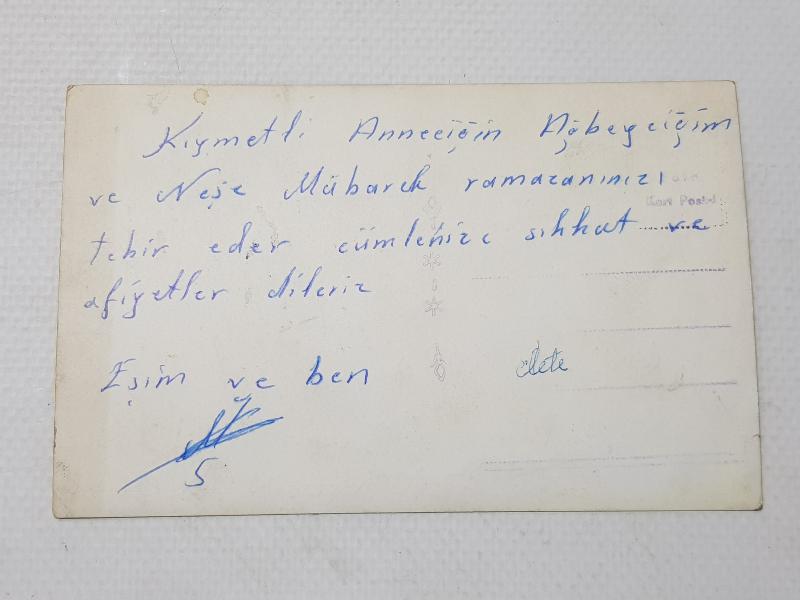 Kıymetli Anneciğin Ağbeyciğim
ve Neşe Mübarek ramazanınızı
Kart Postal
tebir eder cümlenize sıhhat ve
afiyetler dileriz
Eşim ve ben
5